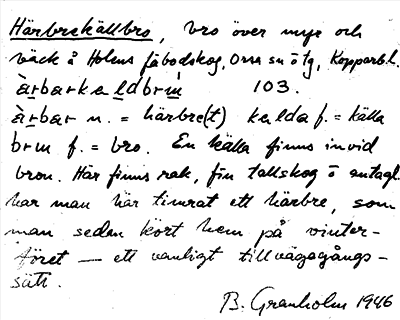 Härbrekällbro, bro över myr och
bäck å Holens fäbodskog, Orsa sn o tg, Kopparb.l.
àrbarkaldbrɯ́ 103.
àrbar n. = härbre(t) kalda f. = källa
brɯ f. = bro. En källa finns invid
bron. Här finns rak, fin tallskog o antagl.
har man här timrat ett härbre, som
man sedan kört hem på vinter-
föret — ett vanligt tillvägagångs-
sätt.
B. Granholm 1946